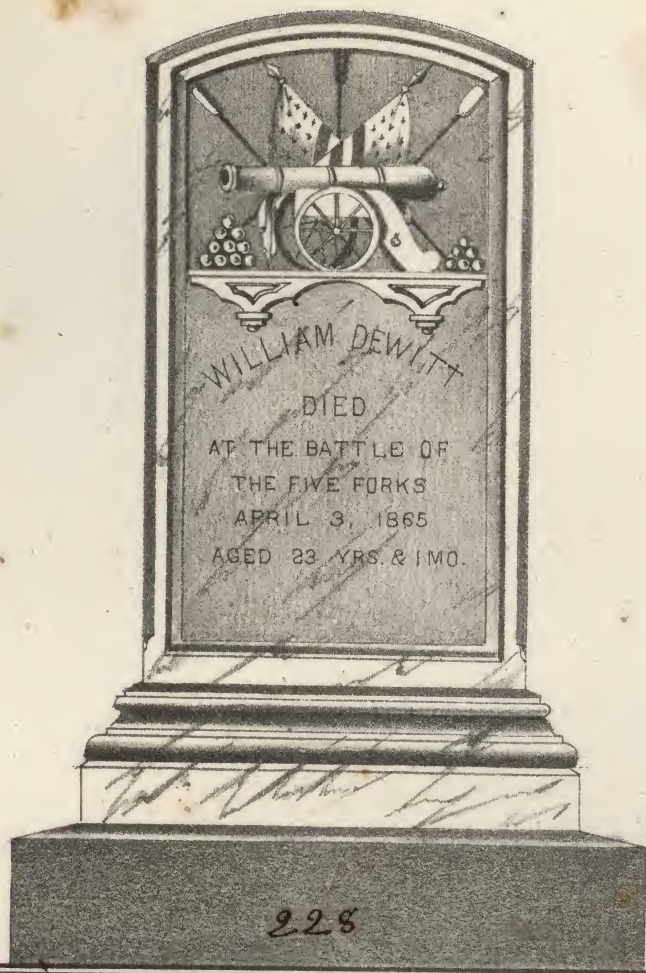 WILLIAM DEWITT
DIED
AT THE BATTLE OF
THE FIVE FORKS
APRIL 3, 1865
AGED 23 YRS. & 1 MO.
228